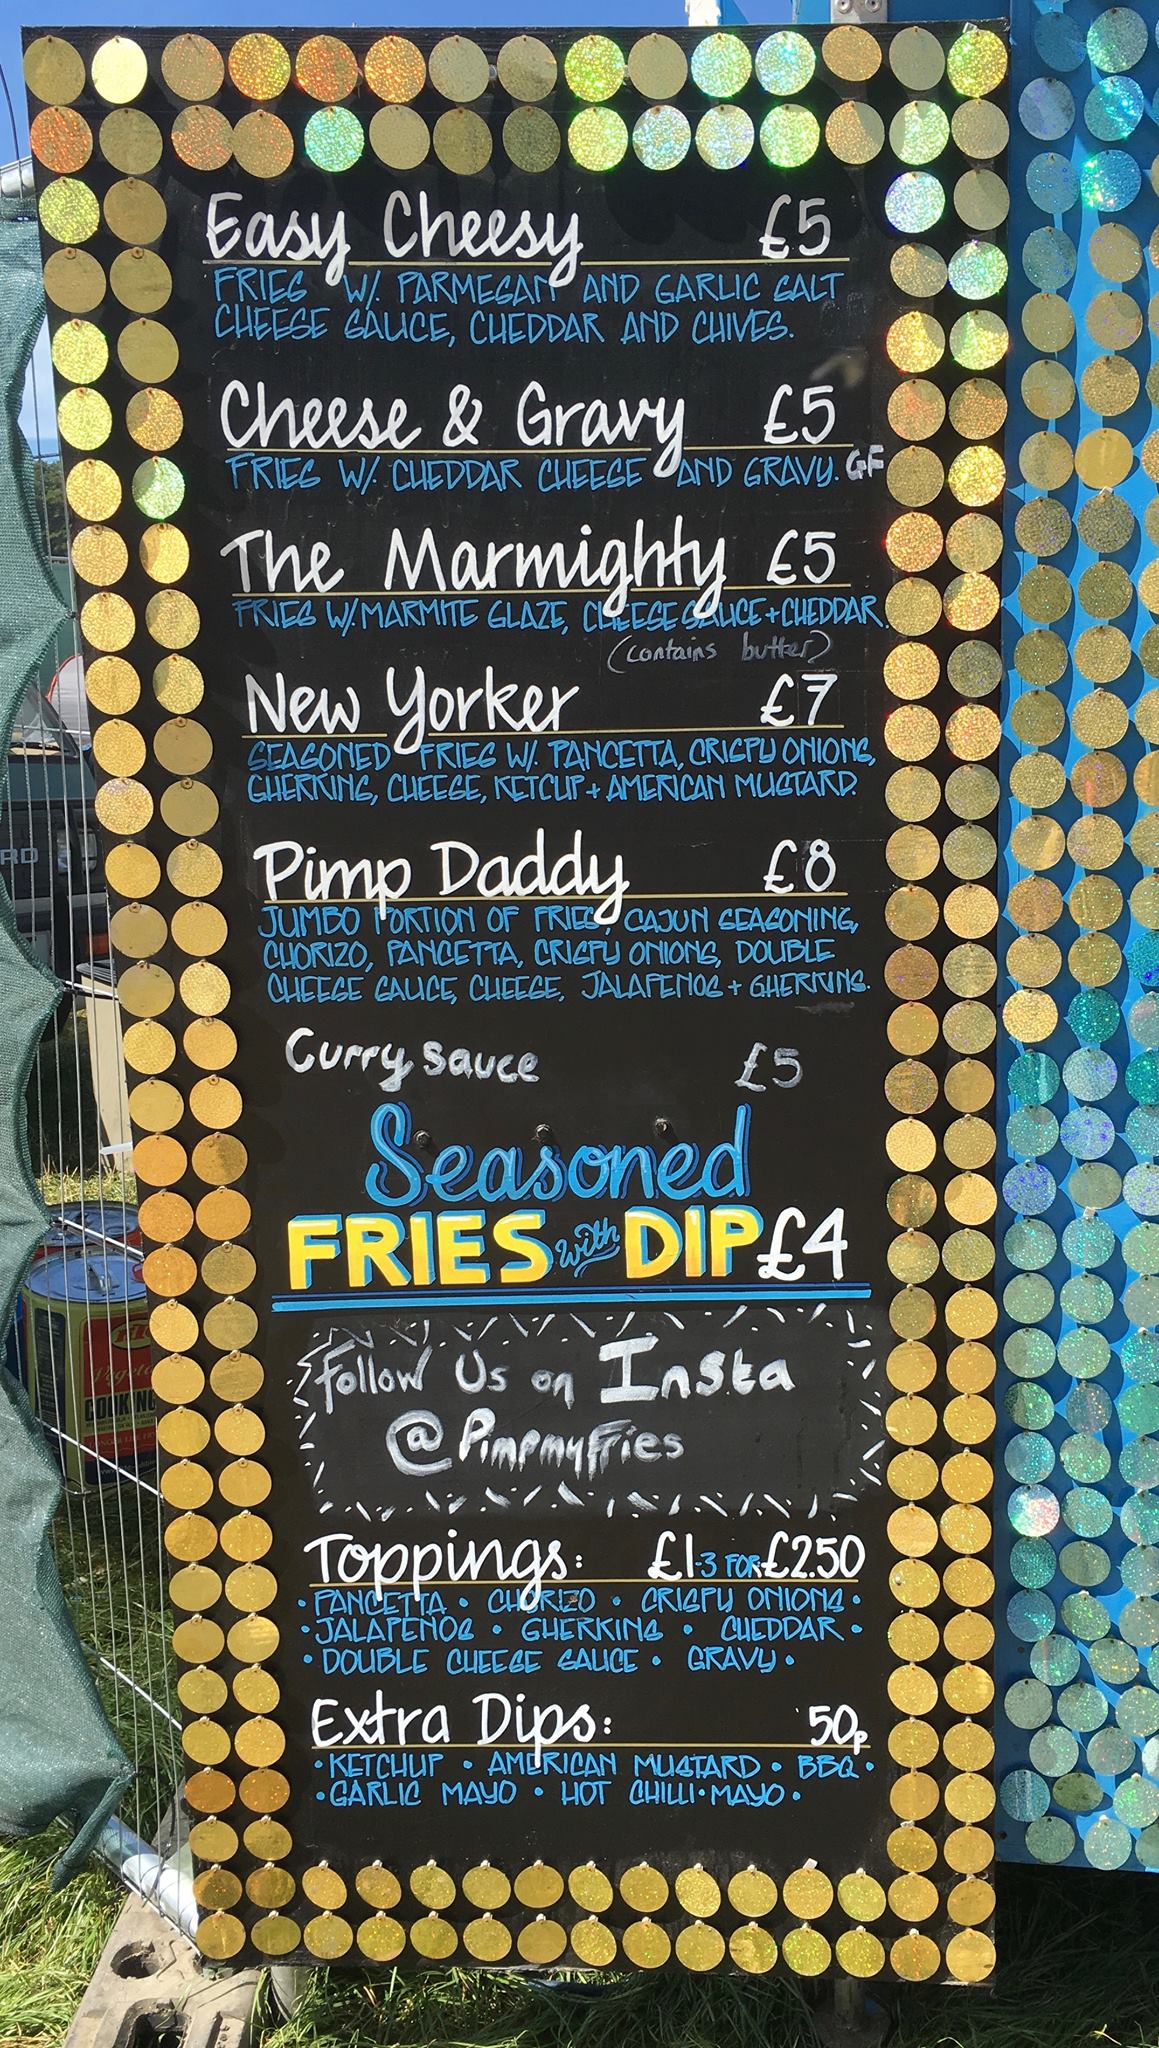 Easy Cheesy £5
FRIES W/. PARMESAN AND GARLIC SALT
CHEESE SAUCE, CHEDDAR AND CHIVES.
Cheese & Gravy £5
FRIES W/. CHEDDAR CHEESE AND GRAVY. GF
The Marmighty £5
FRIES W/. MARMITE GLAZE, CHEESE SAUCE + CHEDDAR.
(contains butter)
New Yorker £7
SEASONED FRIES W/. PANCETTA, CRISPY ONIONS,
GHERKINS, CHEESE, KETCUP + AMERICAN MUSTARD.
Pimp Daddy £8
JUMBO PORTION OF FRIES, CAJUN SEASONING,
CHORIZO, PANCETTA, CRISPY ONIONS, DOUBLE
CHEESE SAUCE, CHEESE, JALAPENOS + GHERKINS.
Curry sauce £5
Seasoned
FRIES with DIP £4
Follow Us on Insta
@PimpmyFries
Toppings: £1 - 3 FOR £2.50
• PANCETTA • CHORIZO • CRISPY ONIONS •
• JALAPENOS • GHERKINS • CHEDDAR •
• DOUBLE CHEESE SAUCE • GRAVY •
Extra Dips: 50p
• KETCHUP • AMERICAN MUSTARD • BBQ •
• GARLIC MAYO • HOT CHILLI • MAYO •
RD